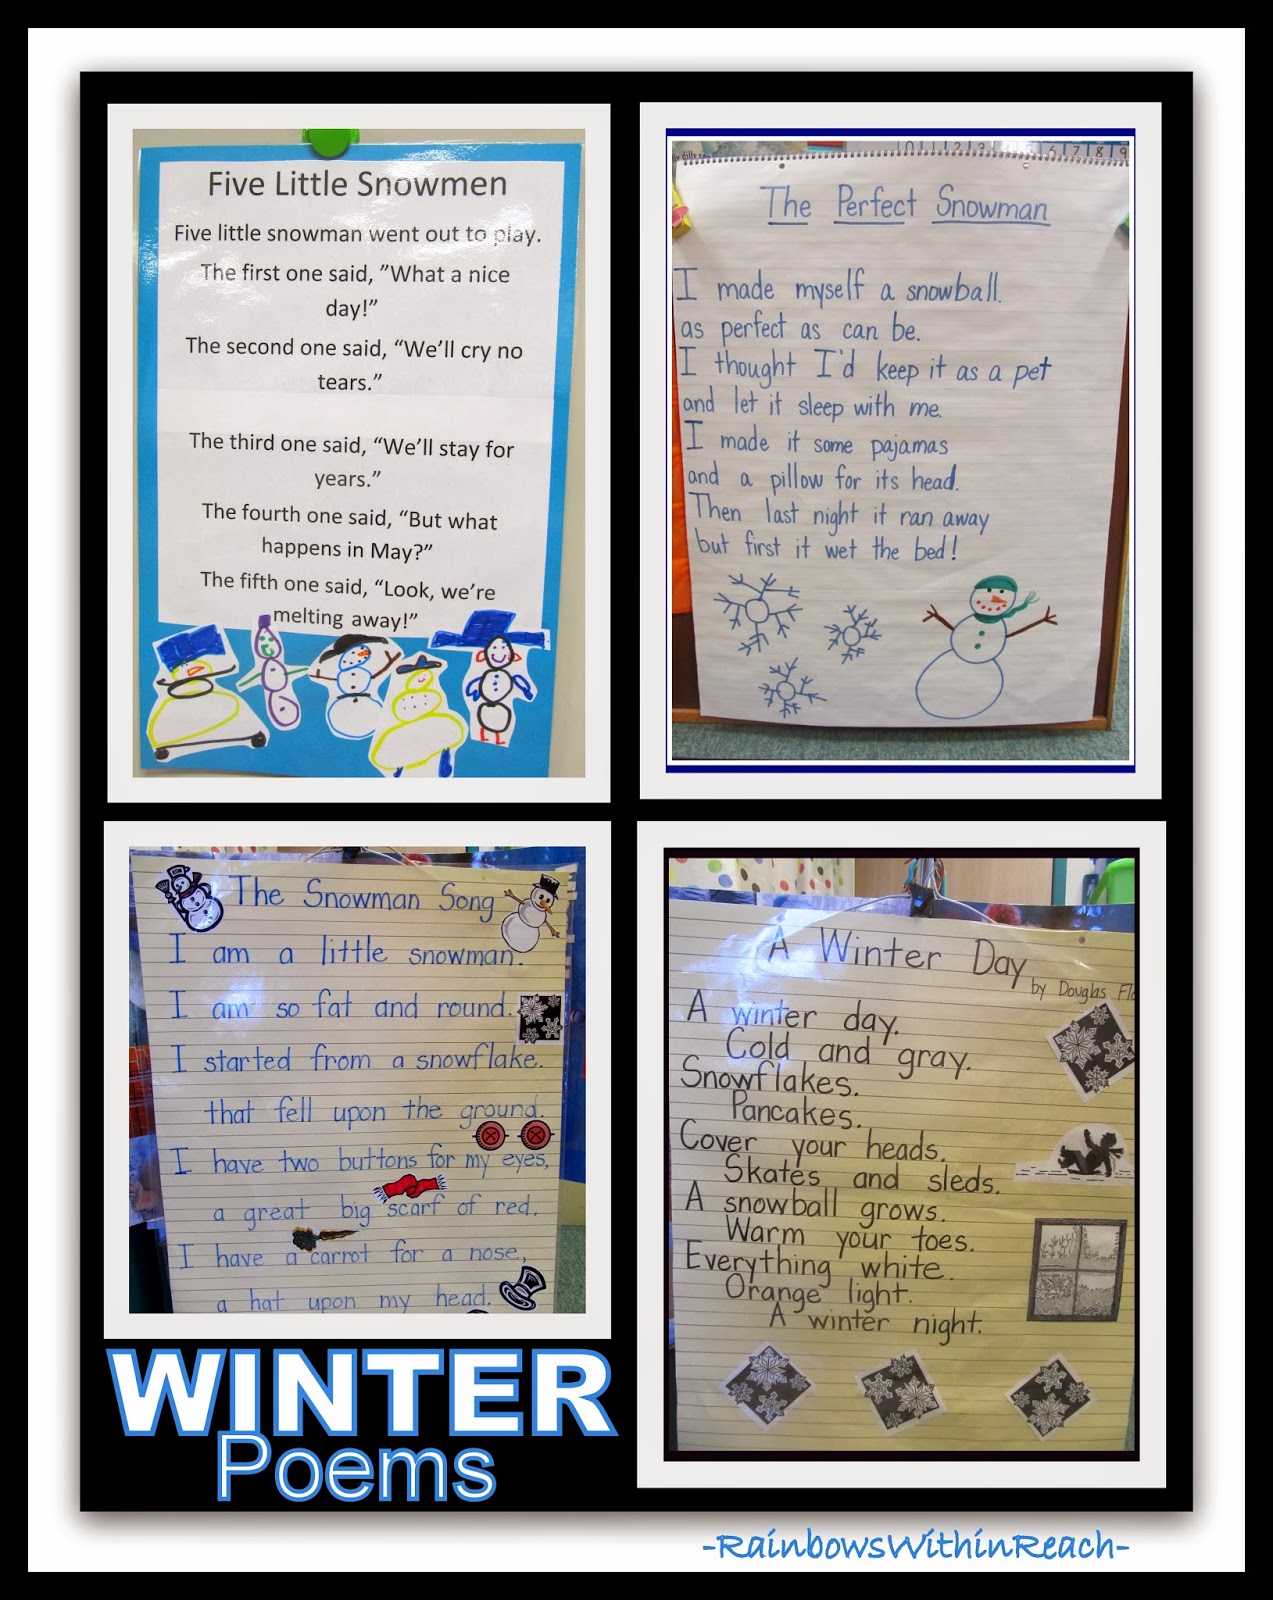 Five Little Snowmen
Five little snowman went out to play.
The first one said, ”What a nice
day!”
The second one said, “We’ll cry no
tears.”
The third one said, “We’ll stay for
years.”
The fourth one said, “But what
happens in May?”
The fifth one said, “Look, we’re
melting away!”
The Perfect Snowman
I made myself a snowball.
as perfect as can be.
I thought I'd keep it as a pet
and let it sleep with me.
I made it some pajamas
and a pillow for its head.
Then last night it ran away
but first it wet the bed!
The Snowman Song
I am a little snowman.
I am so fat and round.
I started from a snowflake.
that fell upon the ground.
I have two buttons for my eyes,
a great big scarf of red.
I have a carrot for a nose,
a hat upon my head.
A Winter Day
by Douglas
A winter day.
Cold and gray.
Snowflakes.
Pancakes.
Cover your heads.
Skates and sleds.
A snowball grows.
Warm your toes.
Everything white.
Orange light.
A winter night.
WINTER
Poems
-RainbowsWithinReach-